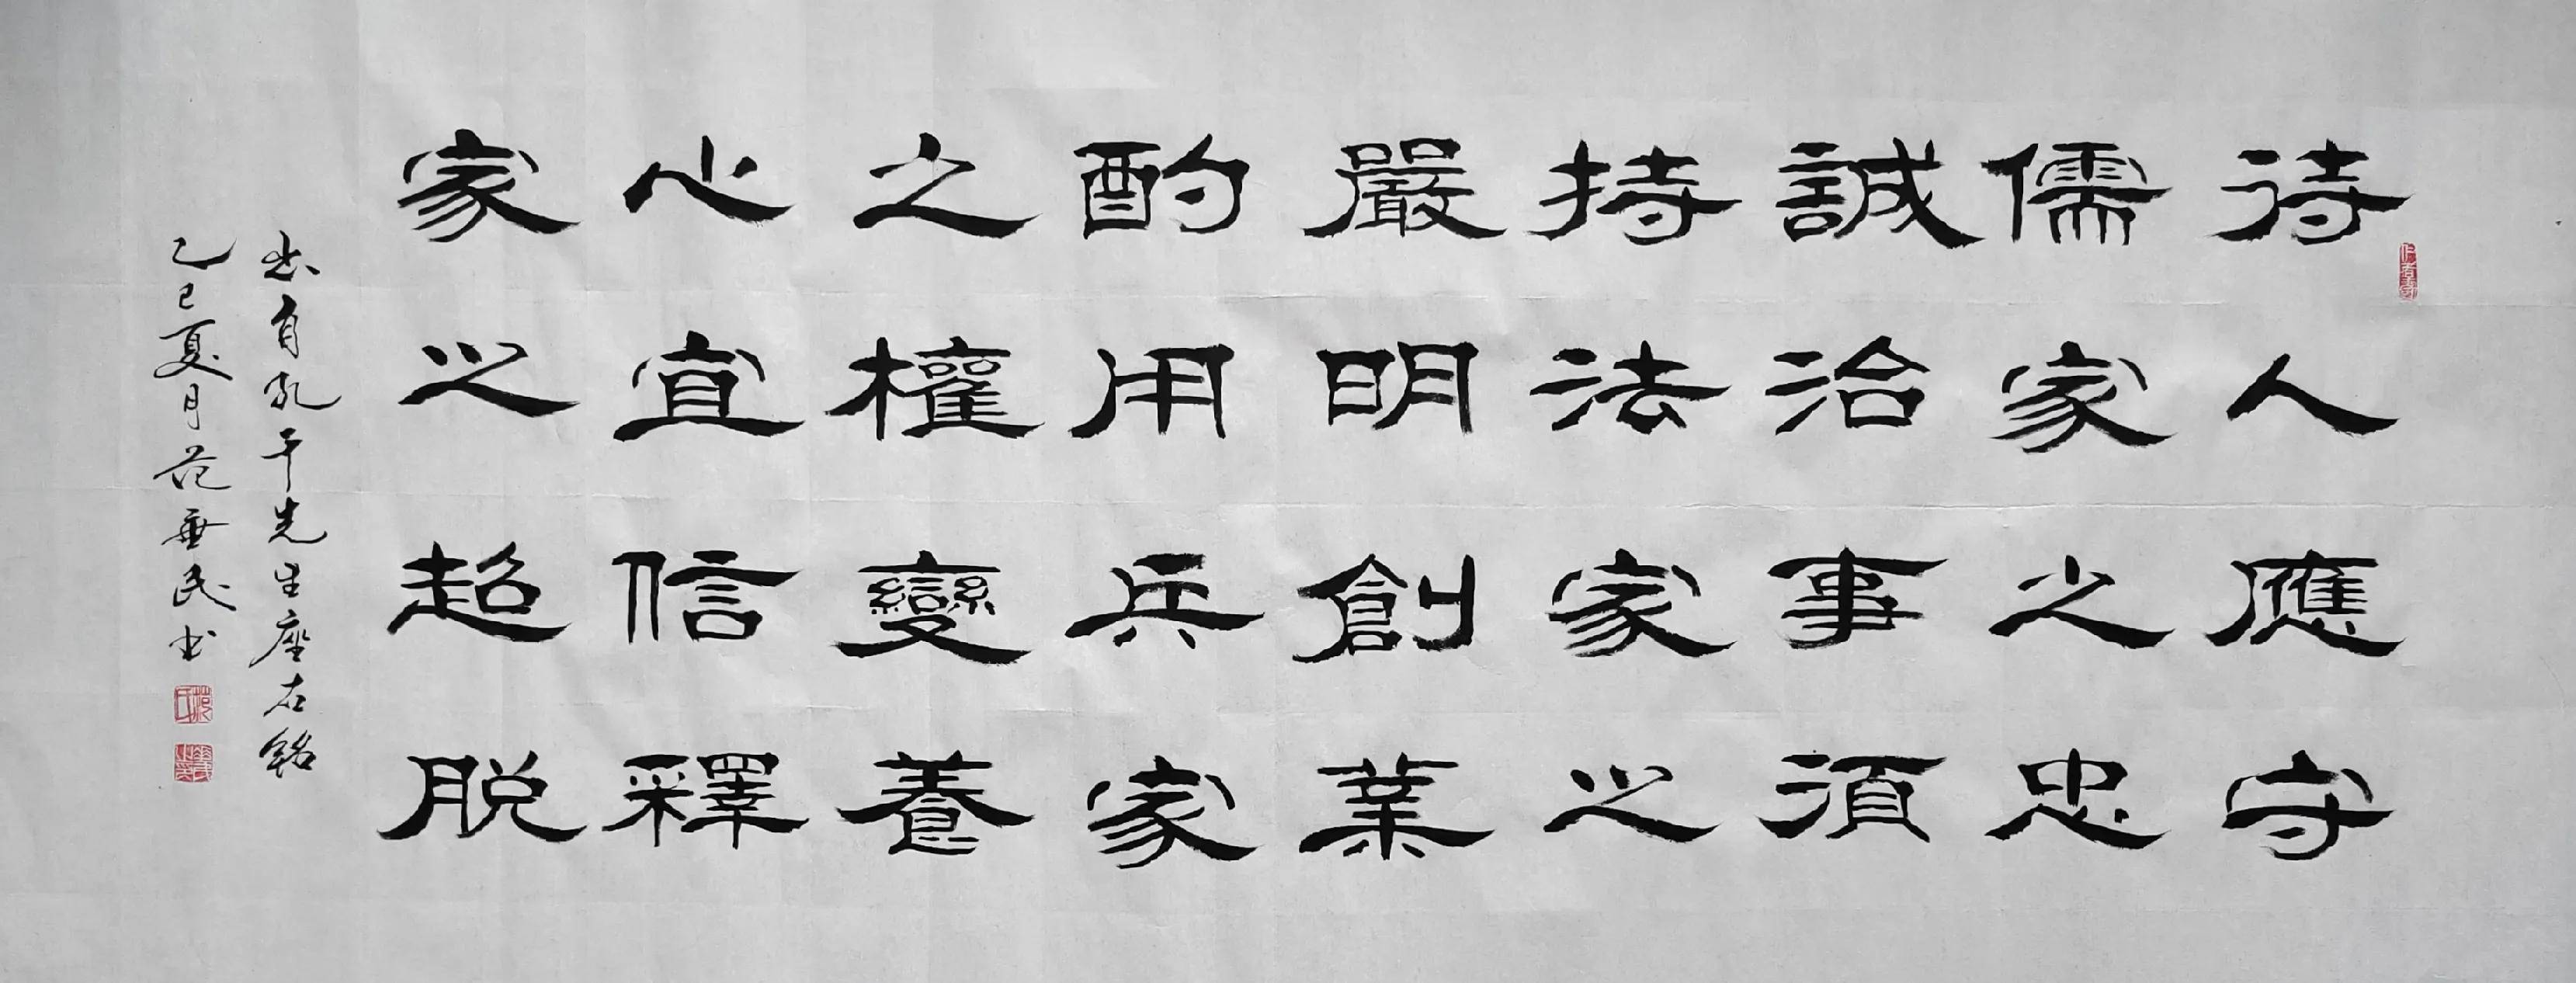 待人應守
儒家之忠
誠治事須
持法家之
嚴明創業
酌用兵家
之權變養
心宜信釋
家之超脫
出自孔千先生座右銘
乙巳夏月范民书